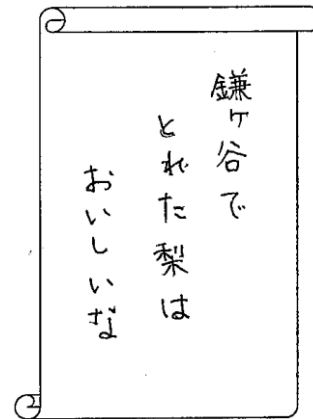 鎌ヶ谷で
とれた梨は
おいしいな